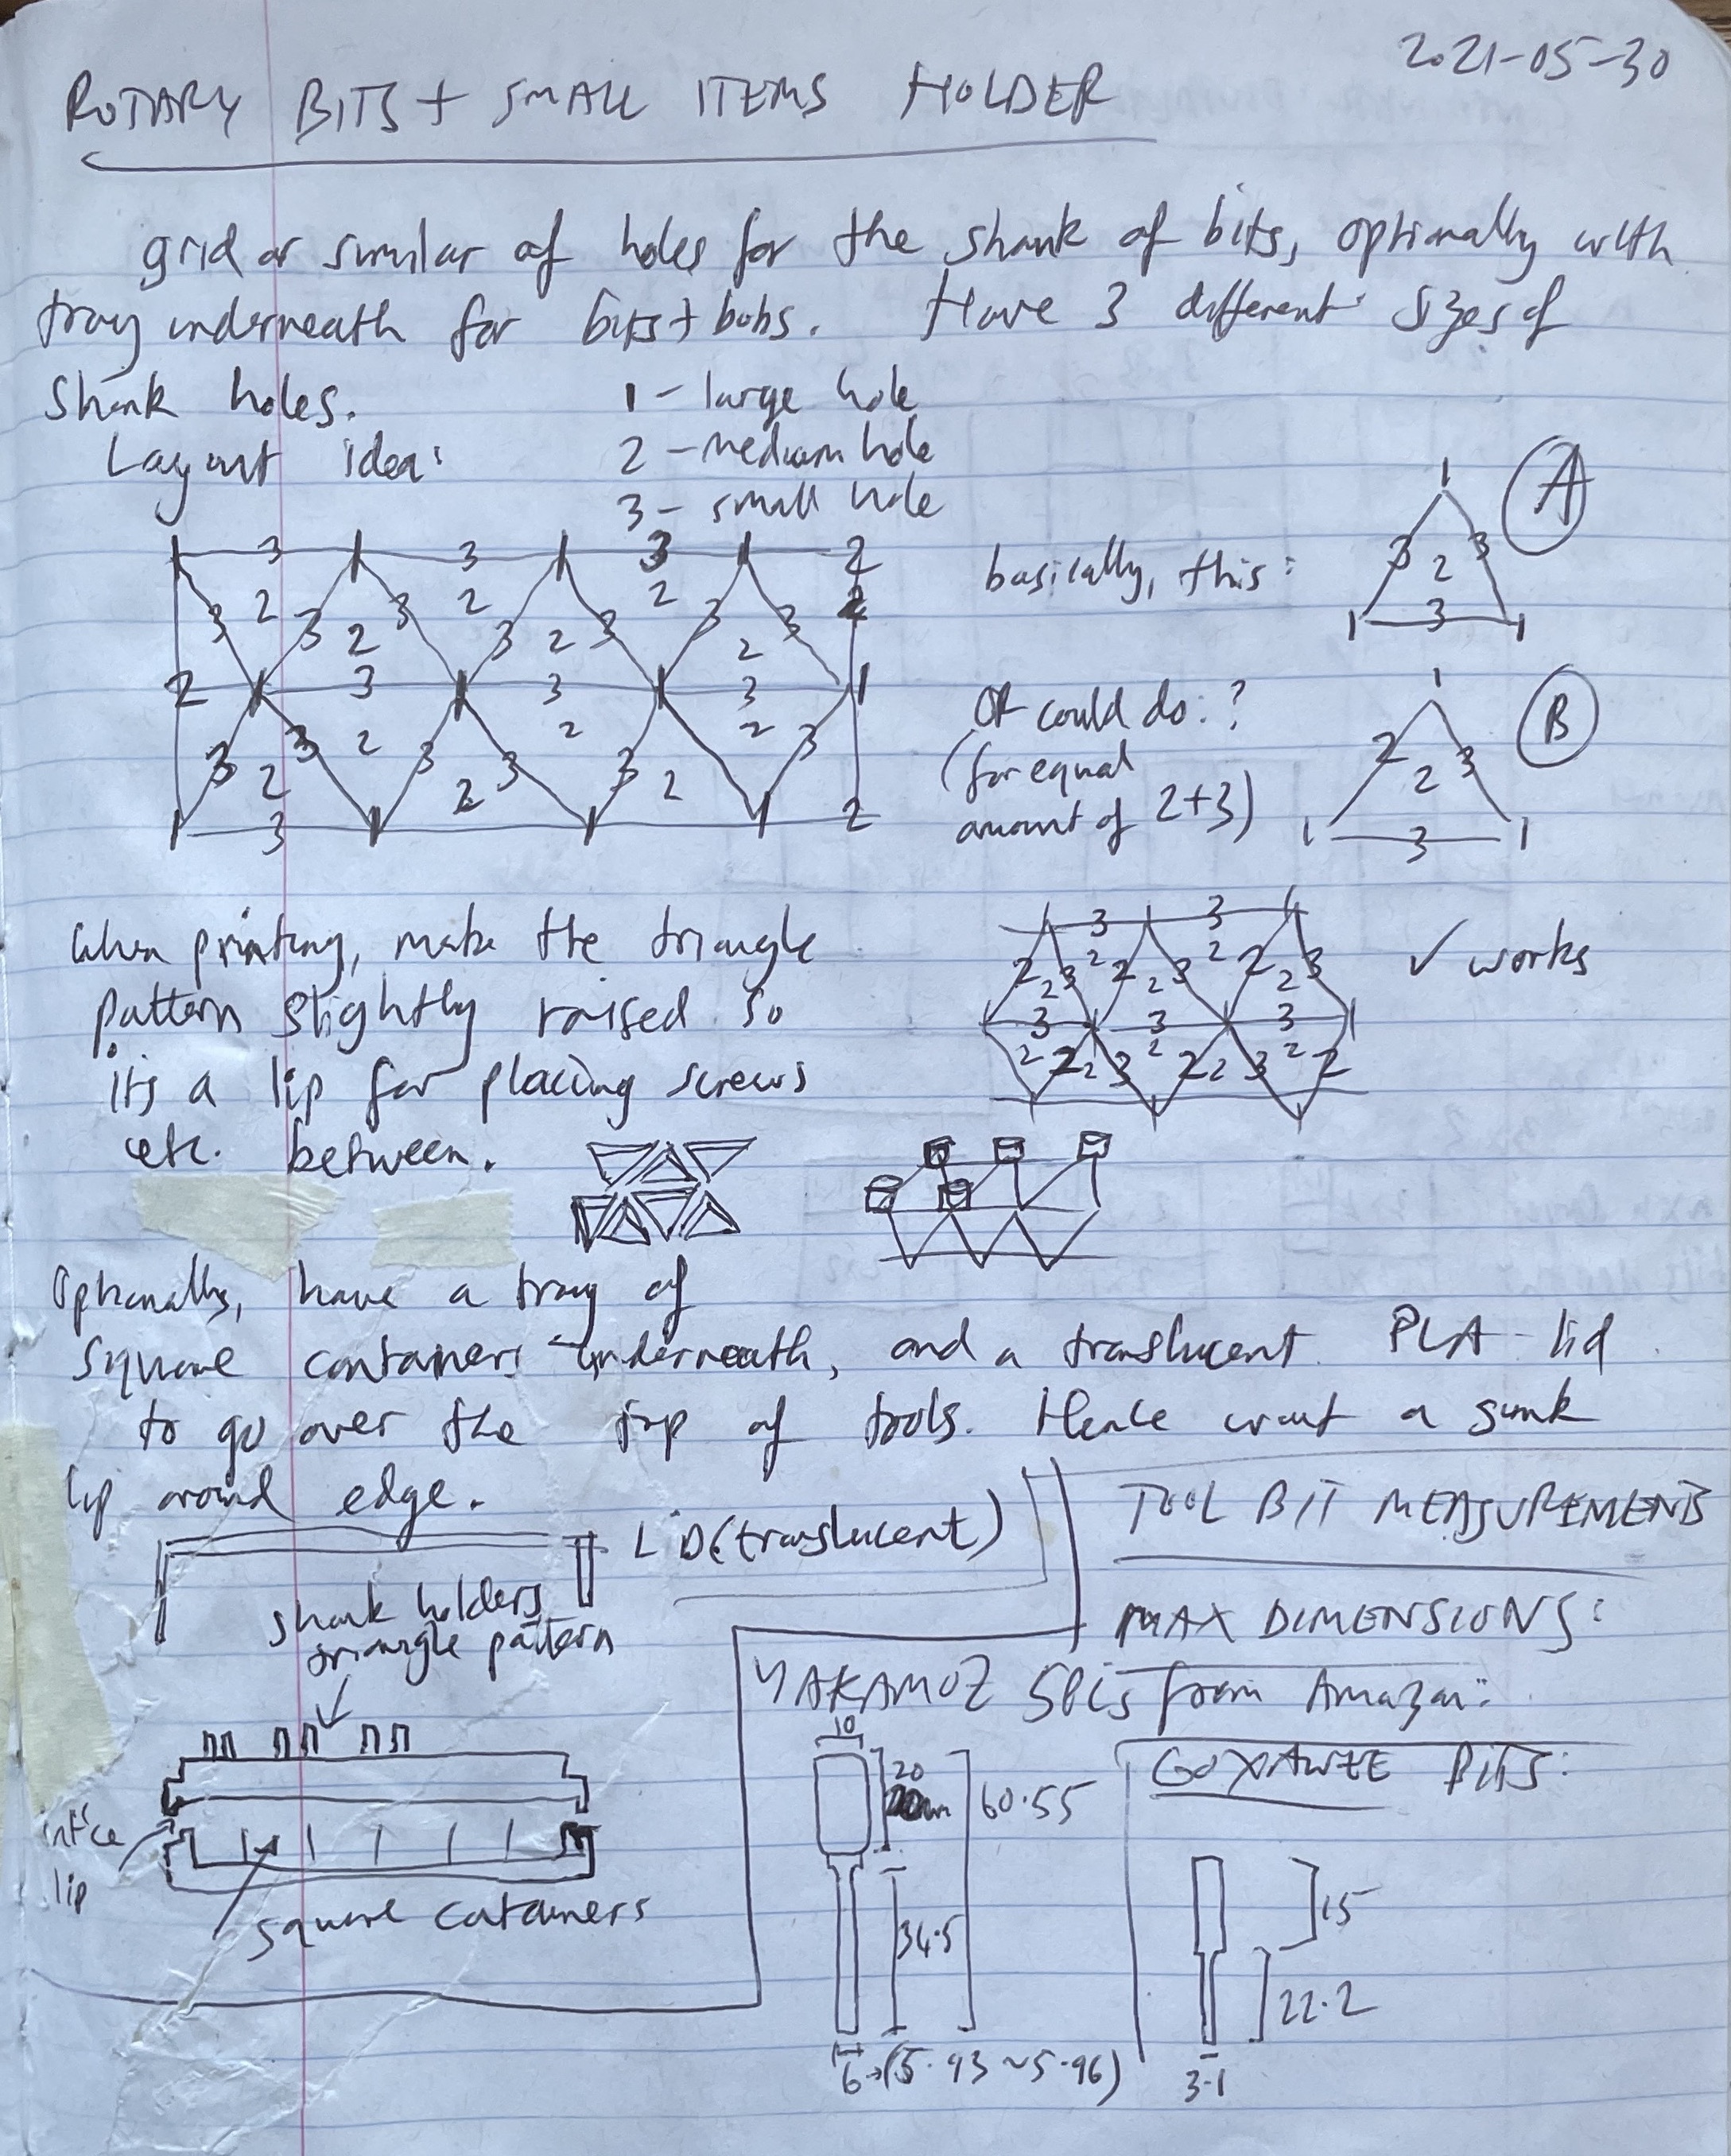 2021-05-30
ROTARY BITS + SMALL ITEMS HOLDER
grid or similar of holes for the shank of bits, optionally with
tray underneath for bits + bobs. Have 3 different sizes of
shank holes.
1 - large hole
Layout idea:
2 - medium hole
3 - small hole
1 3 1 3 1 3 1 2
2 2 2 2
3 3 3 3 3 3
2 2 2
2 1 3 1 3 1 3 1
2 2 2
3 3 3 3 3 3
2 2 2
1 3 1 1 1 2
basically, this:
A
1
3 2 3
1 3 1
OR could do: ?
(for equal
amount of 2+3)
B
1
2 2 3
1 3 1
When printing, make the triangle
pattern slightly raised so
it's a lip for placing screws
etc. between.
3 3
2 3 2 2 3 2 2 3
2 2 2
3 3 3 1
2 2 2 3 2 2 2 3 2 2
✓ works
Optionally, have a tray of
square containers underneath, and a translucent PLA lid
to go over the top of tools. Hence want a sunk
lip around edge.
LID (translucent)
shank holders
triangle pattern
lip
square containers
TOOL BIT MEASUREMENTS
MAX DIMENSIONS:
YAKAMOZ 5pcs from Amazon:
10
20
60.55
34.5
6 → (5.93 ~ 5.96)
GOXAWEE BITS:
15
22.2
3.1